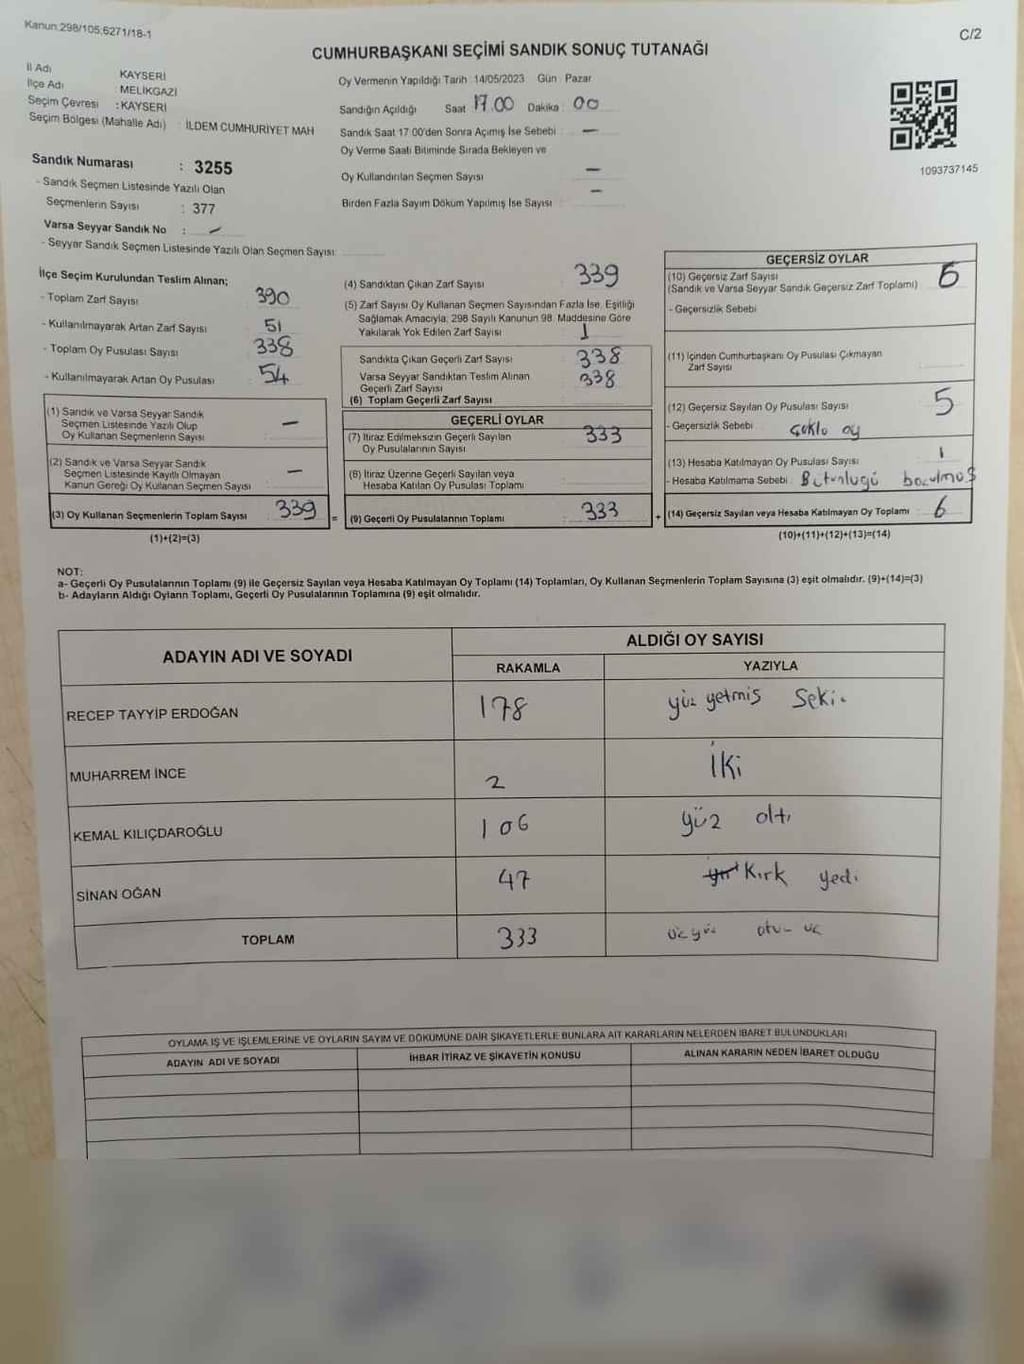 Kanun:298/105;6271/18-1
C/2
CUMHURBAŞKANI SEÇİMİ SANDIK SONUÇ TUTANAĞI
İl Adı : KAYSERİ
İlçe Adı : MELİKGAZİ
Seçim Çevresi : KAYSERİ
Seçim Bölgesi (Mahalle Adı) : İLDEM CUMHURİYET MAH
Sandık Numarası : 3255
- Sandık Seçmen Listesinde Yazılı Olan
Seçmenlerin Sayısı : 377
Varsa Seyyar Sandık No : -
- Seyyar Sandık Seçmen Listesinde Yazılı Olan Seçmen Sayısı:
Oy Vermenin Yapıldığı Tarih : 14/05/2023 Gün : Pazar
Sandığın Açıldığı Saat 17.00 Dakika : 00
Sandık Saat 17:00'den Sonra Açımış İse Sebebi : -
Oy Verme Saati Bitiminde Sırada Bekleyen ve
Oy Kullandırılan Seçmen Sayısı : -
Birden Fazla Sayım Döküm Yapılmış İse Sayısı : -
1093737145
İlçe Seçim Kurulundan Teslim Alınan;
- Toplam Zarf Sayısı : 390
- Kullanılmayarak Artan Zarf Sayısı : 51
- Toplam Oy Pusulası Sayısı : 338
- Kullanılmayarak Artan Oy Pusulası : 54
(1) Sandık ve Varsa Seyyar Sandık
Seçmen Listesinde Yazılı Olup
Oy Kullanan Seçmenlerin Sayısı : -
(2) Sandık ve Varsa Seyyar Sandık
Seçmen Listesinde Kayıtlı Olmayan
Kanun Gereği Oy Kullanan Seçmen Sayısı : -
(3) Oy Kullanan Seçmenlerin Toplam Sayısı : 339
(1)+(2)=(3)
(4) Sandıktan Çıkan Zarf Sayısı : 339
(5) Zarf Sayısı Oy Kullanan Seçmen Sayısından Fazla İse, Eşitliği
Sağlamak Amacıyla, 298 Sayılı Kanunun 98. Maddesine Göre
Yakılarak Yok Edilen Zarf Sayısı : 1
Sandıkta Çıkan Geçerli Zarf Sayısı : 338
Varsa Seyyar Sandıktan Teslim Alınan
Geçerli Zarf Sayısı : 338
(6) Toplam Geçerli Zarf Sayısı
GEÇERLİ OYLAR
(7) İtiraz Edilmeksizin Geçerli Sayılan
Oy Pusulalarının Sayısı : 333
(8) İtiraz Üzerine Geçerli Sayılan veya
Hesaba Katılan Oy Pusulası Toplamı :
= (9) Geçerli Oy Pusulalarının Toplamı : 333
GEÇERSİZ OYLAR
(10) Geçersiz Zarf Sayısı
(Sandık ve Varsa Seyyar Sandık Geçersiz Zarf Toplamı) :
- Geçersizlik Sebebi :
(11) İçinden Cumhurbaşkanı Oy Pusulası Çıkmayan
Zarf Sayısı :
(12) Geçersiz Sayılan Oy Pusulası Sayısı : 5
- Geçersizlik Sebebi :
(13) Hesaba Katılmayan Oy Pusulası Sayısı : 1
- Hesaba Katılmama Sebebi : Bütünlüğü bozulmuş
+ (14) Geçersiz Sayılan veya Hesaba Katılmayan Oy Toplamı : 6
(10)+(11)+(12)+(13)=(14)
NOT:
a- Geçerli Oy Pusulalarının Toplamı (9) ile Geçersiz Sayılan veya Hesaba Katılmayan Oy Toplamı (14) Toplamları, Oy Kullanan Seçmenlerin Toplam Sayısına (3) eşit olmalıdır. (9)+(14)=(3)
b- Adayların Aldığı Oyların Toplamı, Geçerli Oy Pusulalarının Toplamına (9) eşit olmalıdır.
ADAYIN ADI VE SOYADI
ALDIĞI OY SAYISI
RAKAMLA YAZIYLA
RECEP TAYYİP ERDOĞAN 178 yüz yetmiş Seki.
MUHARREM İNCE 2 İki
KEMAL KILIÇDAROĞLU 106 yüz altı
SİNAN OĞAN 47 Kırk yedi
TOPLAM 333 üçyüz otuz üç
OYLAMA İŞ VE İŞLEMLERİNE VE OYLARIN SAYIM VE DÖKÜMÜNE DAİR ŞİKAYETLERLE BUNLARA AİT KARARLARIN NELERDEN İBARET BULUNDUKLARI
ADAYIN ADI VE SOYADI İHBAR İTİRAZ VE ŞİKAYETİN KONUSU ALINAN KARARIN NEDEN İBARET OLDUĞU